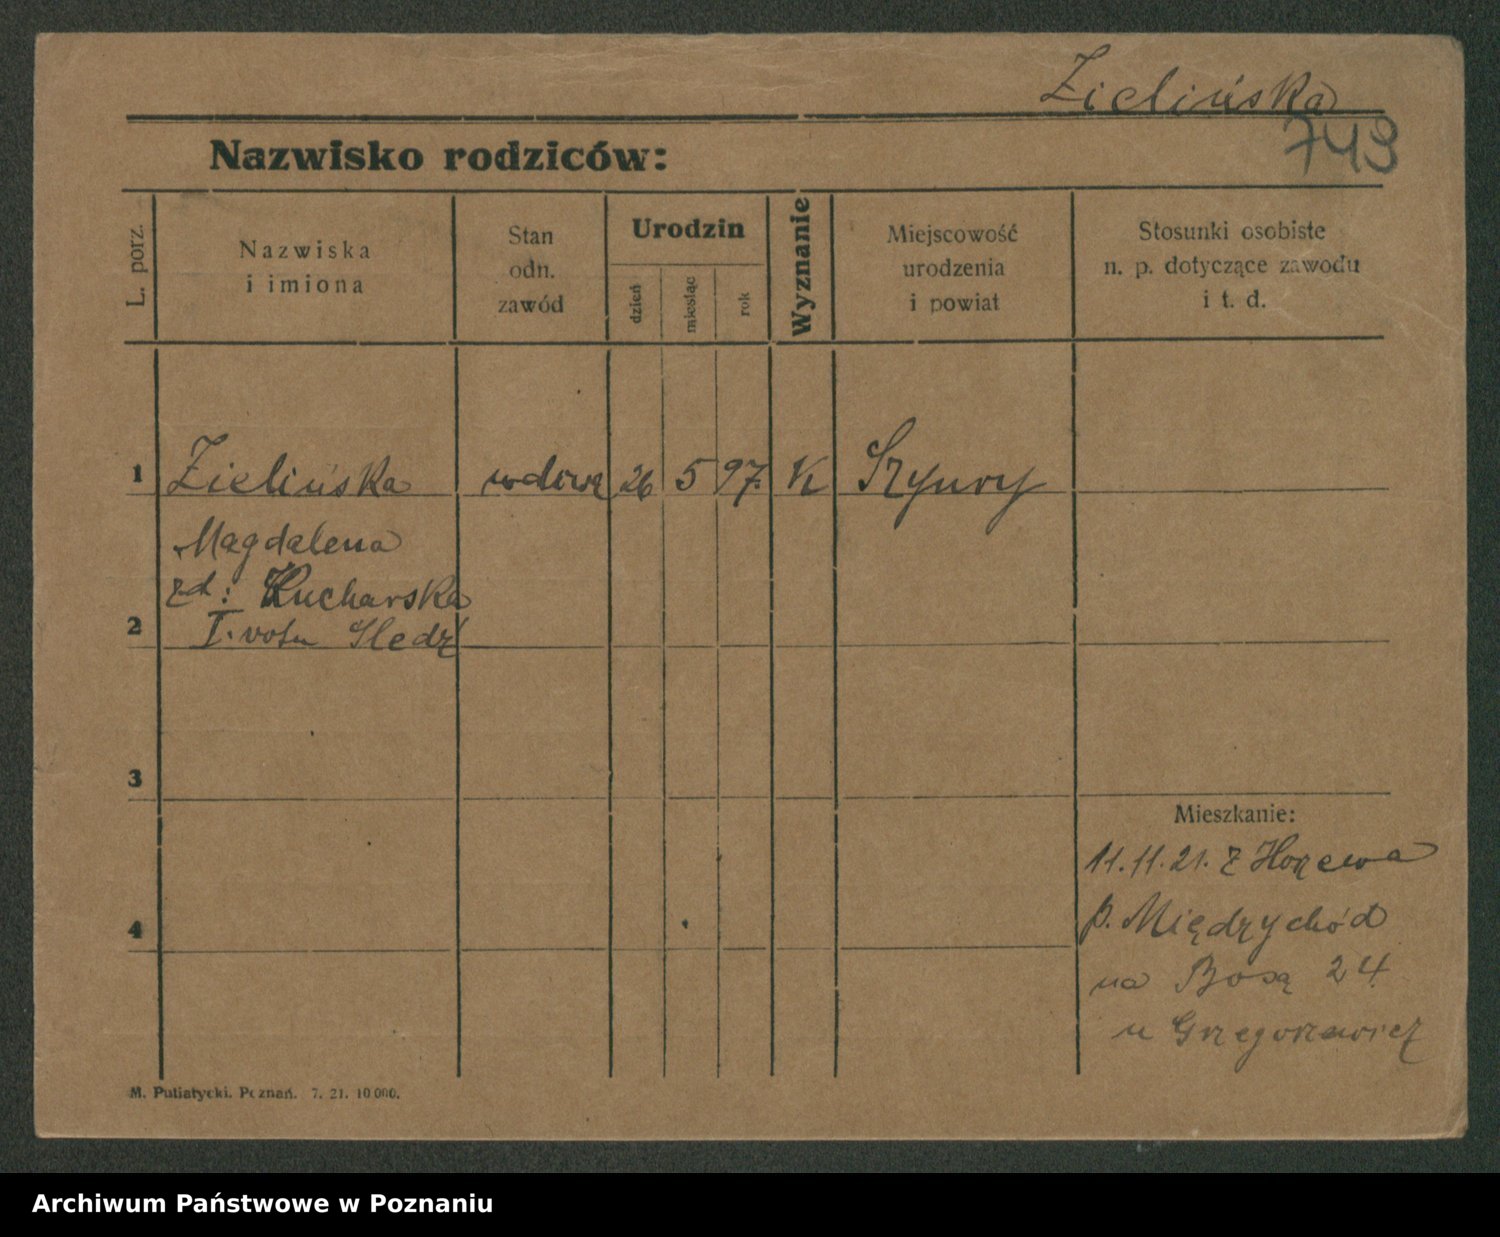 Zielińska
749
Nazwisko rodziców:
L. porz.
Nazwiska
i imiona
Stan
odn.
zawód
Urodzin
dzień
miesiąc
rok
Wyznanie
Miejscowość
urodzenia
i powiat
Stosunki osobiste
n. p. dotyczące zawodu
i t. d.
1 Zielińska wdowa 26 5 97. K
Magdalena
zd: Kucharska
2 I. votu Śledź
3
Mieszkanie:
11.11.21. z
4 p. Międzychód
na Bosą 24
u Grzegorzewicz
M. Putiatycki. Poznań. 7. 21. 10 000.
Archiwum Państwowe w Poznaniu